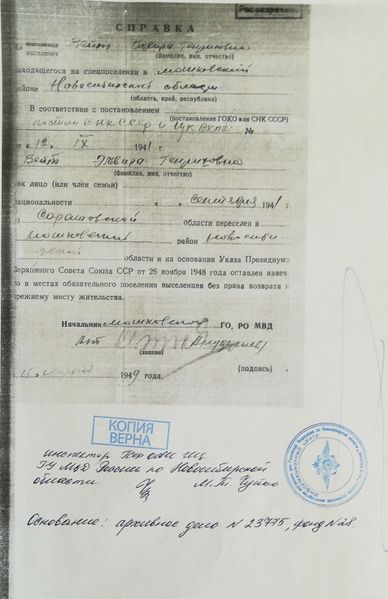 Рассекречено
СПРАВКА
выселенку Вейт Эльвира Генриховна
(фамилия, имя, отчество)
находящегося на спецпоселении в мошковский
районе Новосибирской области
(область, край, республика)
В соответствии с постановлением
(постановление ГОКО или СНК СССР)
СНК СССР и ЦК ВКП(б) №
« 12 » IX 1941 г.
Вейт Эльвира Генриховна
(фамилия, имя, отчество)
как лицо (или член семьи)
национальности « » сентября 1941 г.
Саратовской области переселен в
мошковский район новосиби
области и на основании Указа Президиума
Верховного Совета Союза ССР от 26 ноября 1948 года оставлен навеч-
но в местах обязательного поселения выселенцев без права возврата к
прежнему месту жительства.
Начальник мошковского ГО, РО МВД
(звание) (подпись)
1949 года.
КОПИЯ
ВЕРНА
ГУ МВД России по Новосибирской
области
Основание: архивное дело N 23775, фонд N 28.